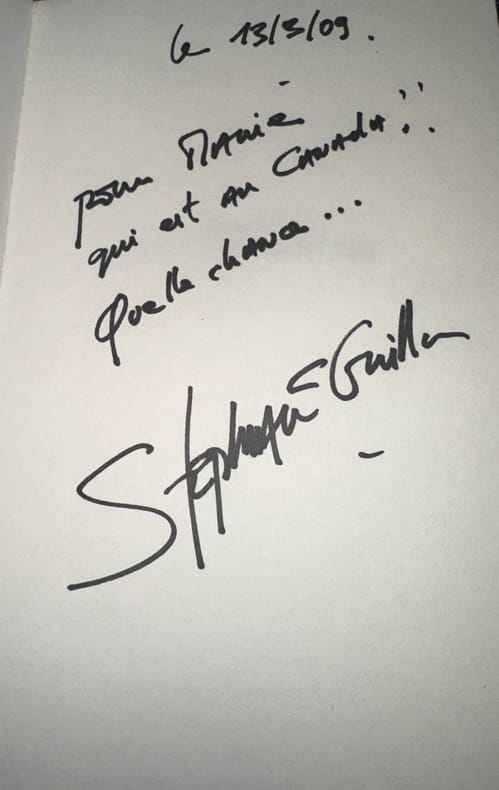 le 13/3/09.
pour Marie
qui est au Canada !!
Quelle chance...
Stéphane Guillon